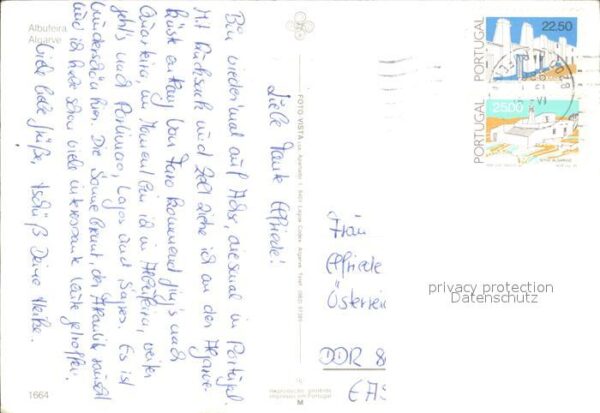 Albufeira
Algarve
Liebe Tante Elfriede!
Bin wiedermal auf Achse, diesmal in Portugal.
Mit Rucksack und Zelt ziehe ich an der Algarve-
Küste entlang. Von Faro kommend ging's nach
Quarteira, im Moment bin ich in Albufeira, weiter
geht's nach Portimao, Lagos und Sagres. Es ist
wunderschön hier. Die Sonne brennt, der Atlantik rauscht
und ich habe schon viele interessante Leute getroffen.
Viele liebe Grüße, tschüß Deine Heike.
1664
FOTO VISTA
Algarve
M
PORTUGAL
22.50
PORTUGAL
25.00
Frau
Elfriede
Österrei
DDR 8
privacy protection
Datenschutz